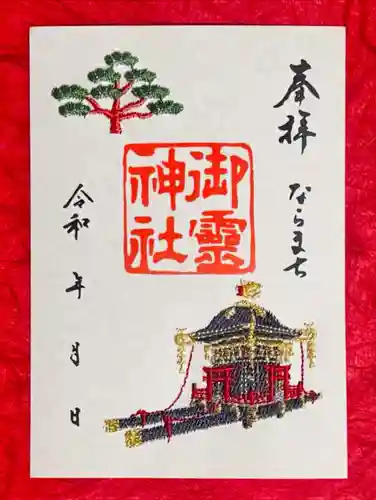 奉拝
ならまち
御霊
神社
令和 年 月 日